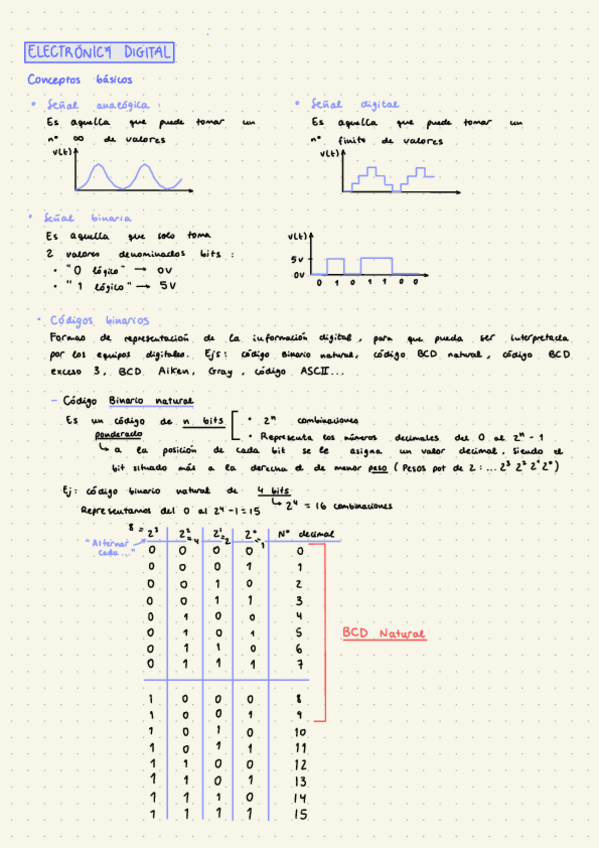 ELECTRÓNICA DIGITAL
Conceptos básicos
• Señal analógica :
Es aquella que puede tomar un
nº ∞ de valores
V(t)
• Señal digital
Es aquella que puede tomar un
nº finito de valores
V(t)
• Señal binaria
Es aquella que solo toma
2 valores denominados bits :
• "0 lógico" → 0V
• "1 lógico" → 5V
V(t)
5V
0V
0 1 0 1 1 0 0
• Códigos binarios
Formas de representación de la información digital, para que pueda ser interpretada
por los equipos digitales. Ejs: código Binario natural, código BCD natural, código BCD
exceso 3, BCD Aiken, Gray, código ASCII...
- Código Binario natural
Es un código de n bits
ponderado
• 2ⁿ combinaciones
• Representa los números decimales del 0 al 2ⁿ - 1
↳ a la posición de cada bit se le asigna un valor decimal, siendo el
bit situado más a la derecha el de menor peso (Pesos pot de 2: ... 2³ 2² 2¹ 2⁰)
Ej: código binario natural de 4 bits
↳ 2⁴ = 16 combinaciones
Representamos del 0 al 2⁴-1=15
8 = 2³ 2²=4 2¹=2 2⁰=1 Nº decimal
"Alternar
cada..."
0 0 0 0 0
0 0 0 1 1
0 0 1 0 2
0 0 1 1 3
0 1 0 0 4
0 1 0 1 5
0 1 1 0 6
0 1 1 1 7
BCD Natural
1 0 0 0 8
1 0 0 1 9
1 0 1 0 10
1 0 1 1 11
1 1 0 0 12
1 1 0 1 13
1 1 1 0 14
1 1 1 1 15